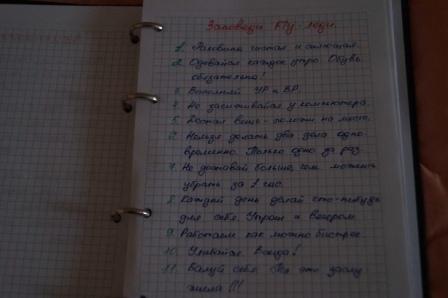 Заповеди Fly-леди.
1. Раковина чистая и сияющая.
2. Одевайся каждое утро. Обувь
обязательно!
3. Выполняй УР и ВР.
4. Не засиживайся у компьютера.
5. Достал вещь - положи на место.
6. Нельзя делать два дела одно-
временно. Только одно за раз.
7. Не доставай больше, чем можешь
убрать за 1 час.
8. Каждый день делай что-нибудь
для себя. Утром и вечером.
9. Работаем как можно быстрее.
10. Улыбайся. Всегда!
11. Балуй себя. Ты это заслу-
жила!!!